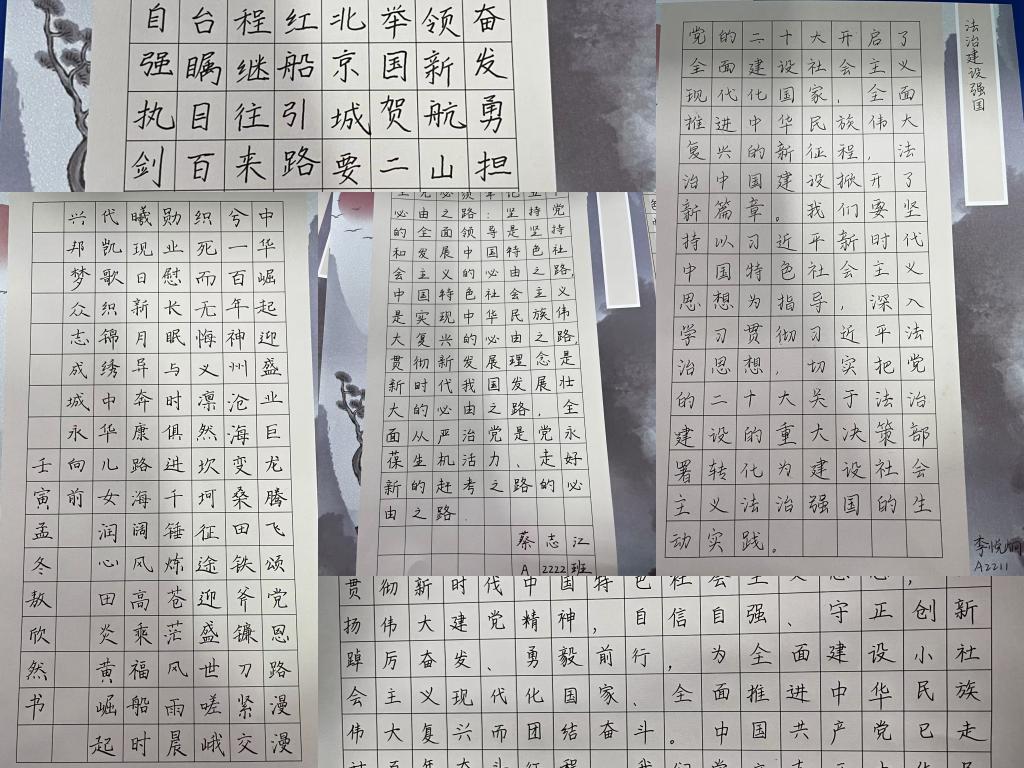 奋发勇担
领新航山
举国贺二
北京城要
红船引路
程继往来
台瞩目百
自强执剑
法治建设强国
党的二十大开启了
全面建设社会主义
现代化国家，全面
推进中华民族伟大
复兴的新征程，法
治中国建设掀开了
新篇章。我们要坚
持以习近平新时代
中国特色社会主义
思想为指导，深入
学习贯彻习近平法
治思想，切实把党
的二十大关于法治
建设的重大决策部
署转化为建设社会
主义法治强国的生
动实践。
李悦炯
A2211
中华崛起迎盛业巨龙腾飞颂党恩路漫漫
兮一百年神州沧海变桑田铁斧镰刀紧交
织死而无悔义凛然坎坷征途迎盛世嗟峨
勋业慰长眠与时俱进千锤炼苍茫风雨晨
曦现日新月异奔康路海阔风高乘福船时
代凯歌织锦绣中华儿女润心田炎黄崛起
兴邦梦众志成城永向前
壬寅孟冬敖欣然书
必由之路：坚持党
的全面领导是坚持
和发展中国特色社
会主义的必由之路，
中国特色社会主义
是实现中华民族伟
大复兴的必由之路，
贯彻新发展理念是
新时代我国发展壮
大的必由之路，全
面从严治党是党永
葆生机活力、走好
新的赶考之路的必
由之路.
蔡志江
A2222班
贯彻新时代中国特色社会主义思想，
扬伟大建党精神，自信自强、守正创新
踔厉奋发、勇毅前行，为全面建设小社
会主义现代化国家、全面推进中华民族
伟大复兴而团结奋斗。中国共产党已走